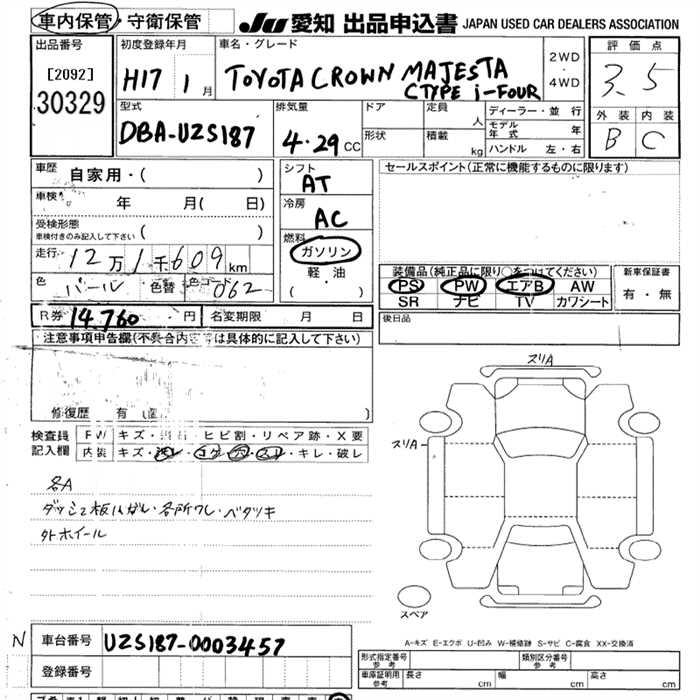 車内保管・守衛保管
JU 愛知 出品申込書 JAPAN USED CAR DEALERS ASSOCIATION
出品番号
[2092]
30329
初度登録年月
H17 1 月
車名・グレード
TOYOTA CROWN MAJESTA
CTYPE i-FOUR
2WD
・
4WD
評価点
3.5
外装 内装
B C
型式
DBA-UZS187
排気量
4.29 CC
ドア
形状
定員 人
積載 kg
ディーラー・並行
モデル年式 年
ハンドル 左・右
車歴
自家用・( )
車検 年 月( 日)
受検形態
車検付きのみ記入して下さい ( )
走行 12万1千609 km
色 パール 色替 色コード 062
シフト
AT
冷房
AC
燃料
ガソリン
軽油
( ・ )
セールスポイント(正常に機能するものに限ります)
装備品(純正品に限り○をつけてください)
PS PW エアB AW
SR ナビ TV カワシート
新車保証書
有・無
R券 14.760 円 名変期限 月 日
後日品
注意事項申告欄(不具合内容等は具体的に記入して下さい)
修復歴 有 ( )
検査員
記入欄
FW キズ・飛石・ヒビ割・リペア跡・X要
内装 キズ・汚レ・コゲ・穴・スレ・キレ・破レ
各A
ダッシュ板ハガレ・各所ワレ・ベタツキ
外ホイール
スリA
スリA
スペア
A-キズ E-エクボ U-凹み W-補修跡 S-サビ C-腐食 XX-交換済
N 車台番号 UZS187-0003457
登録番号
形式指定番号
参考
類別区分番号
参考
車庫証明用
参考
長さ cm 幅 cm 高さ cm